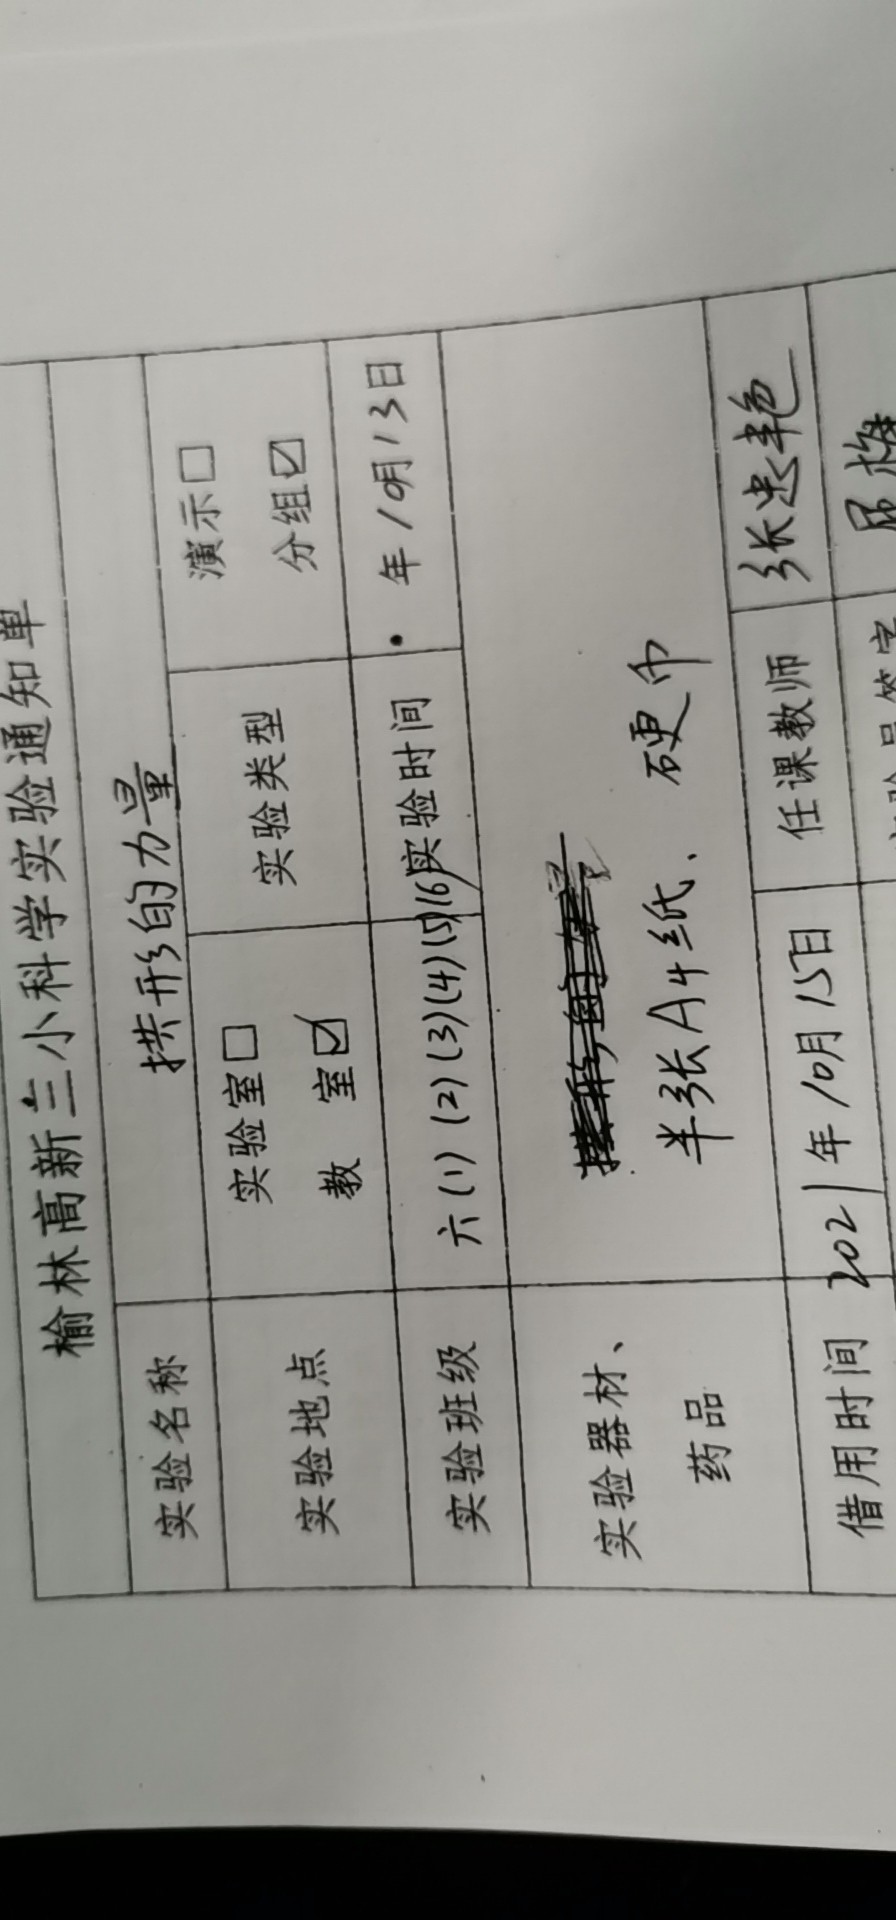 榆林高新三小科学实验通知单
实验名称 拱形的力量
实验地点 实验室□ 教 室☑ 实验类型 演示□ 分组☑
实验班级 六(1)(2)(3)(4)(5)(6) 实验时间 年10月13日
实验器材、药品 半张A4纸、硬币
借用时间 2021年10月15日 任课教师 张忠艳
签字 屈梅